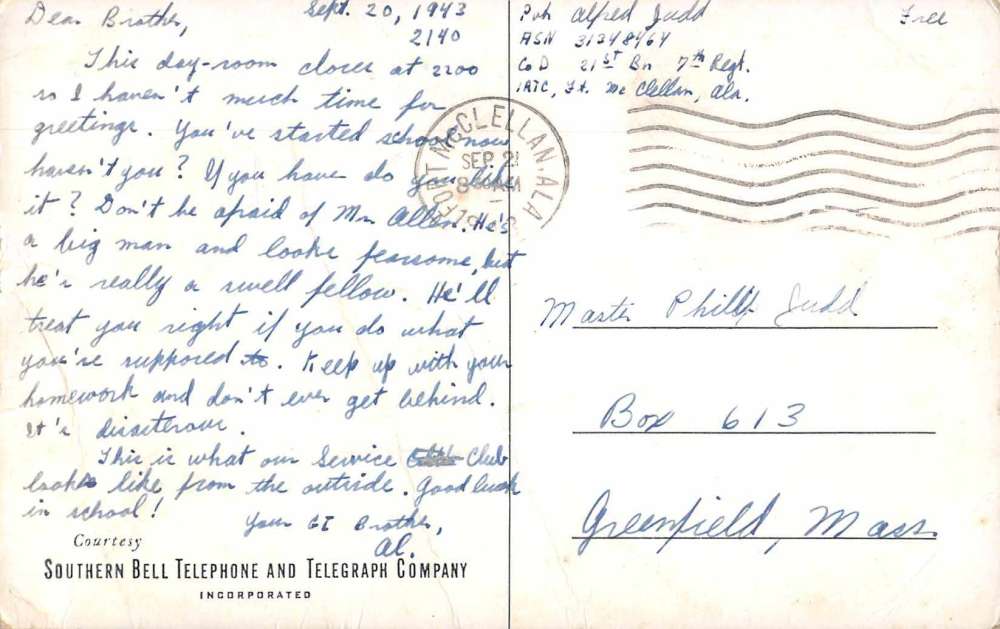 Dear Brother,
Sept. 20, 1943
2140
This day-room closes at 2200
so I haven't much time for
greetings. You've started school now
haven't you? If you have do you like
it? Don't be afraid of Mr. Allen. He's
a big man and looks fearsome, but
he's really a swell fellow. He'll
treat you right if you do what
you're supposed to. Keep up with your
homework and don't ever get behind.
It's disasterous.
This is what our Service Club
looks like from the outside. Good luck
in school!
Your GI Brother,
Al.
Courtesy
SOUTHERN BELL TELEPHONE AND TELEGRAPH COMPANY
INCORPORATED
Pvt Alfred Judd
ASN 31348464
Co D 21st Bn 7th Regt.
IRTC, Ft. McClellan, Ala.
Free
FORT McCLELLAN, ALA
SEP 21
AM
Master Phillip Judd
Box 613
Greenfield, Mass.